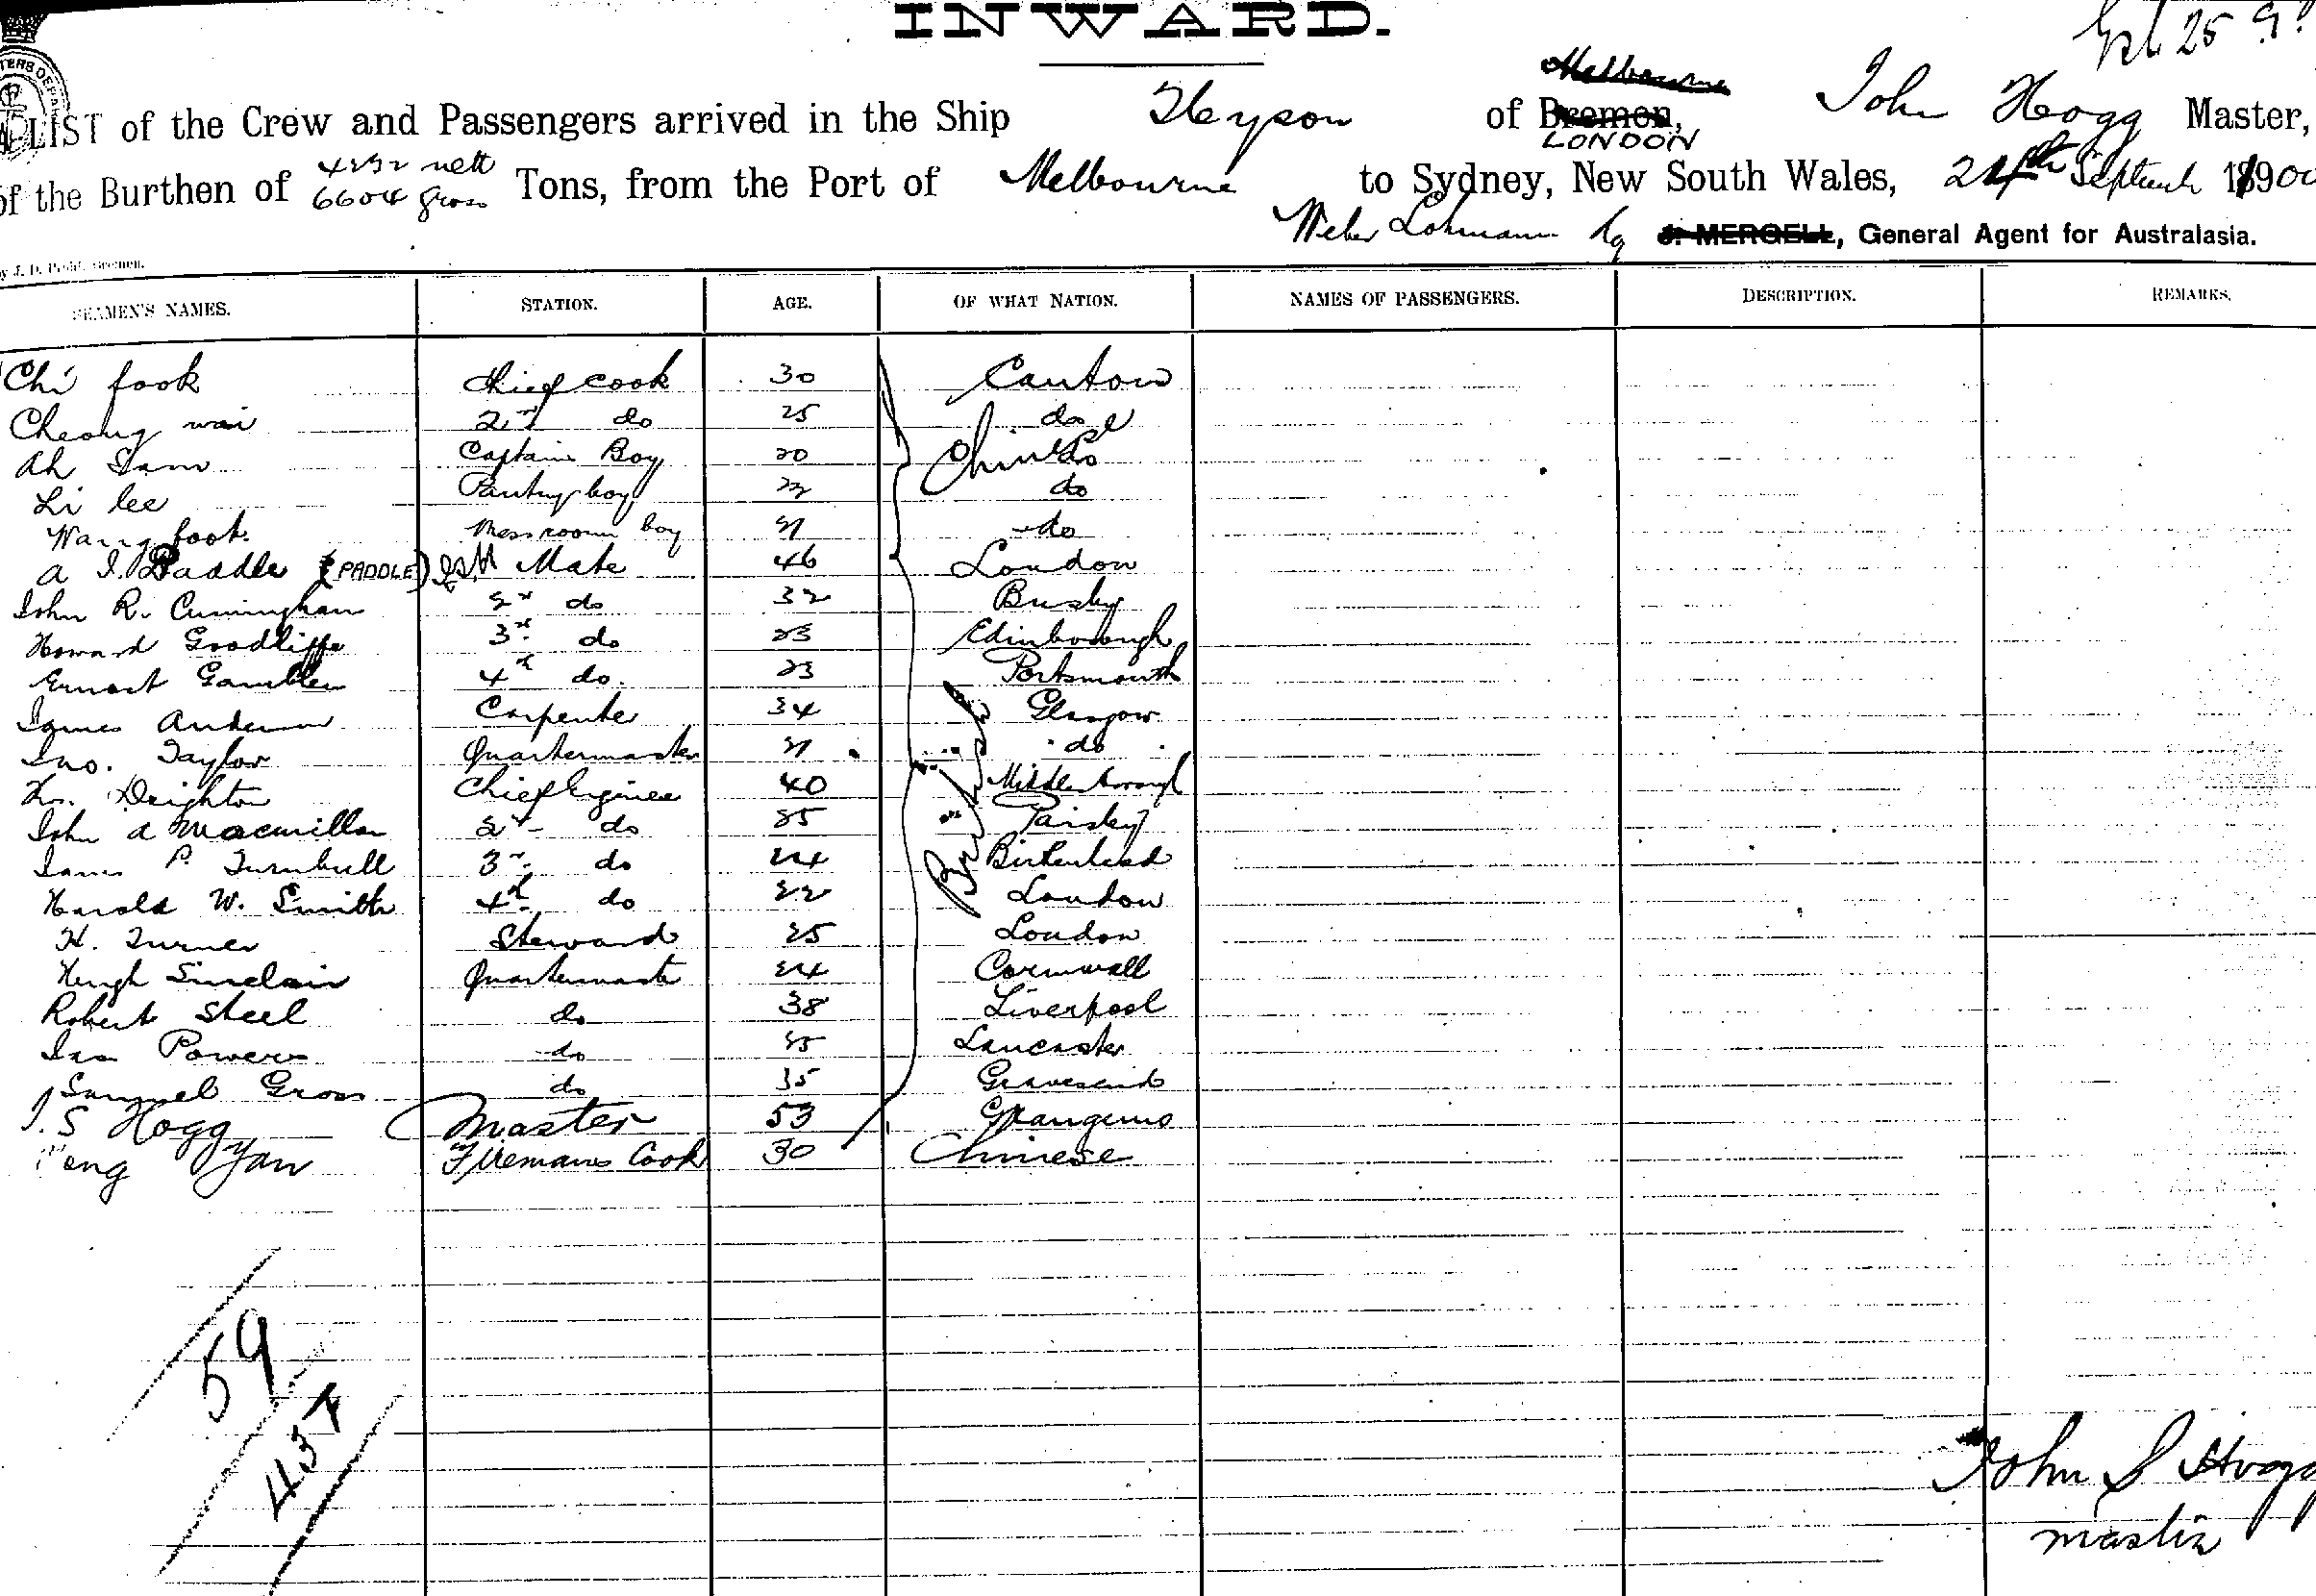 INWARD.
LIST of the Crew and Passengers arrived in the Ship Heyson of Bremen, John Hogg Master,
Melbourne
LONDON
of the Burthen of 4232 nett Tons, from the Port of Melbourne to Sydney, New South Wales, 24th September 1900
6604 gross
Weber Lohmann J. MERGELL, General Agent for Australasia.
SEAMEN'S NAMES. STATION. AGE. OF WHAT NATION. NAMES OF PASSENGERS. DESCRIPTION. REMARKS.
Chi fook Chief cook 30 Canton
Cheong wai 2nd do 25 do
Ah Sam Captain Boy 20 do
Chinese
Li lee Pantry boy do
fook Messroom boy do
A Paddle (PADDLE) 1st Mate 46 London
John R. Cuningham 2nd do 32 Busby
Howard Goodliffe 3rd do 23 Edinborough
Ernest Gamblen 4th do. 23 Portsmouth
James Anderson Carpenter 34 Glasgow
Jno. Taylor Quartermaster do
Deighton Chief Engineer 40 Middlesborough
John A Macmillan 2nd do Paisley
James P. Turnbull 3rd do 24 Birkenhead
British
Harold W. Smith 4th do 22 London
H. Turner Steward 25 London
Hugh Sinclair Quartermaster 24 Cornwall
Robert Steel do 38 Liverpool
Powers do Lancaster
Samuel Gross do 35 Gravesend
J. S Hogg Master 53
Yan Firemans Cook 30 Chinese
59
437
John S Hogg
master